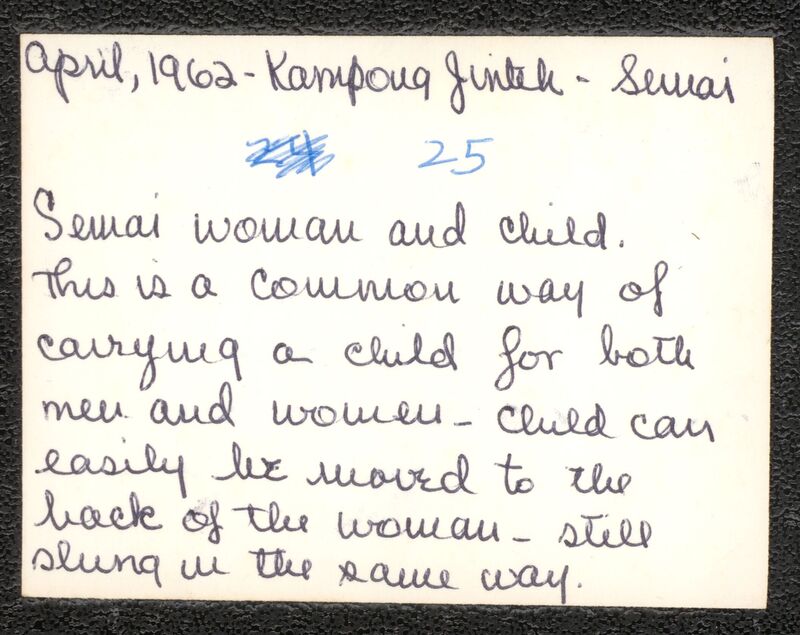 April, 1962 - Kampong Jintek - Semai
25
Semai woman and child.
This is a common way of
carrying a child for both
men and women - child can
easily be moved to the
back of the woman - still
slung in the same way.